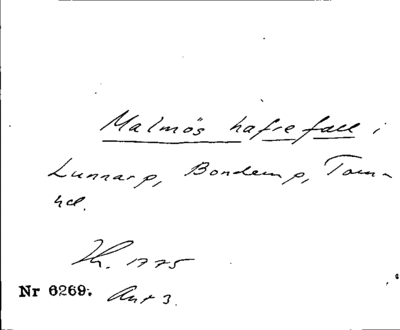 Malmös hafrefall i
Lunnarp, Bondemp, Tom-
hel.
Kr. 1775
Nr 6269. Ant 3.